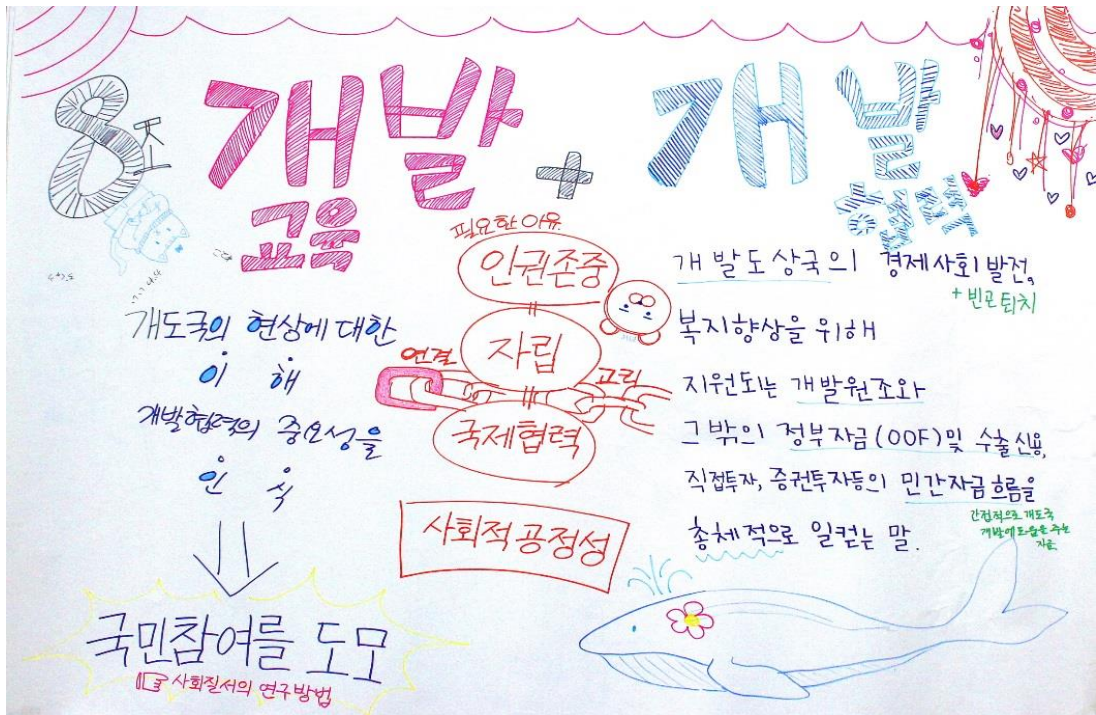 8조
개발
교육
+
개발
협력
개도국의 현상에 대한
이해
개발협력의 중요성을
인식
국민참여를 도모
사회질서의 연구방법
필요한 이유
인권존중
자립
연결
고리
국제협력
사회적 공정성
개발도상국의 경제사회 발전,
+ 빈곤퇴치
복지향상을 위해
지원되는 개발원조와
그 밖의 정부자금(OOF)및 수출신용,
직접투자, 증권투자등의 민간자금 흐름을
간접적으로 개도국
개발에 도움을 주는
자금
총체적으로 일컫는 말.